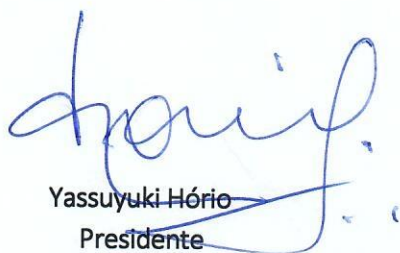 Yassuyuki Hório
Presidente